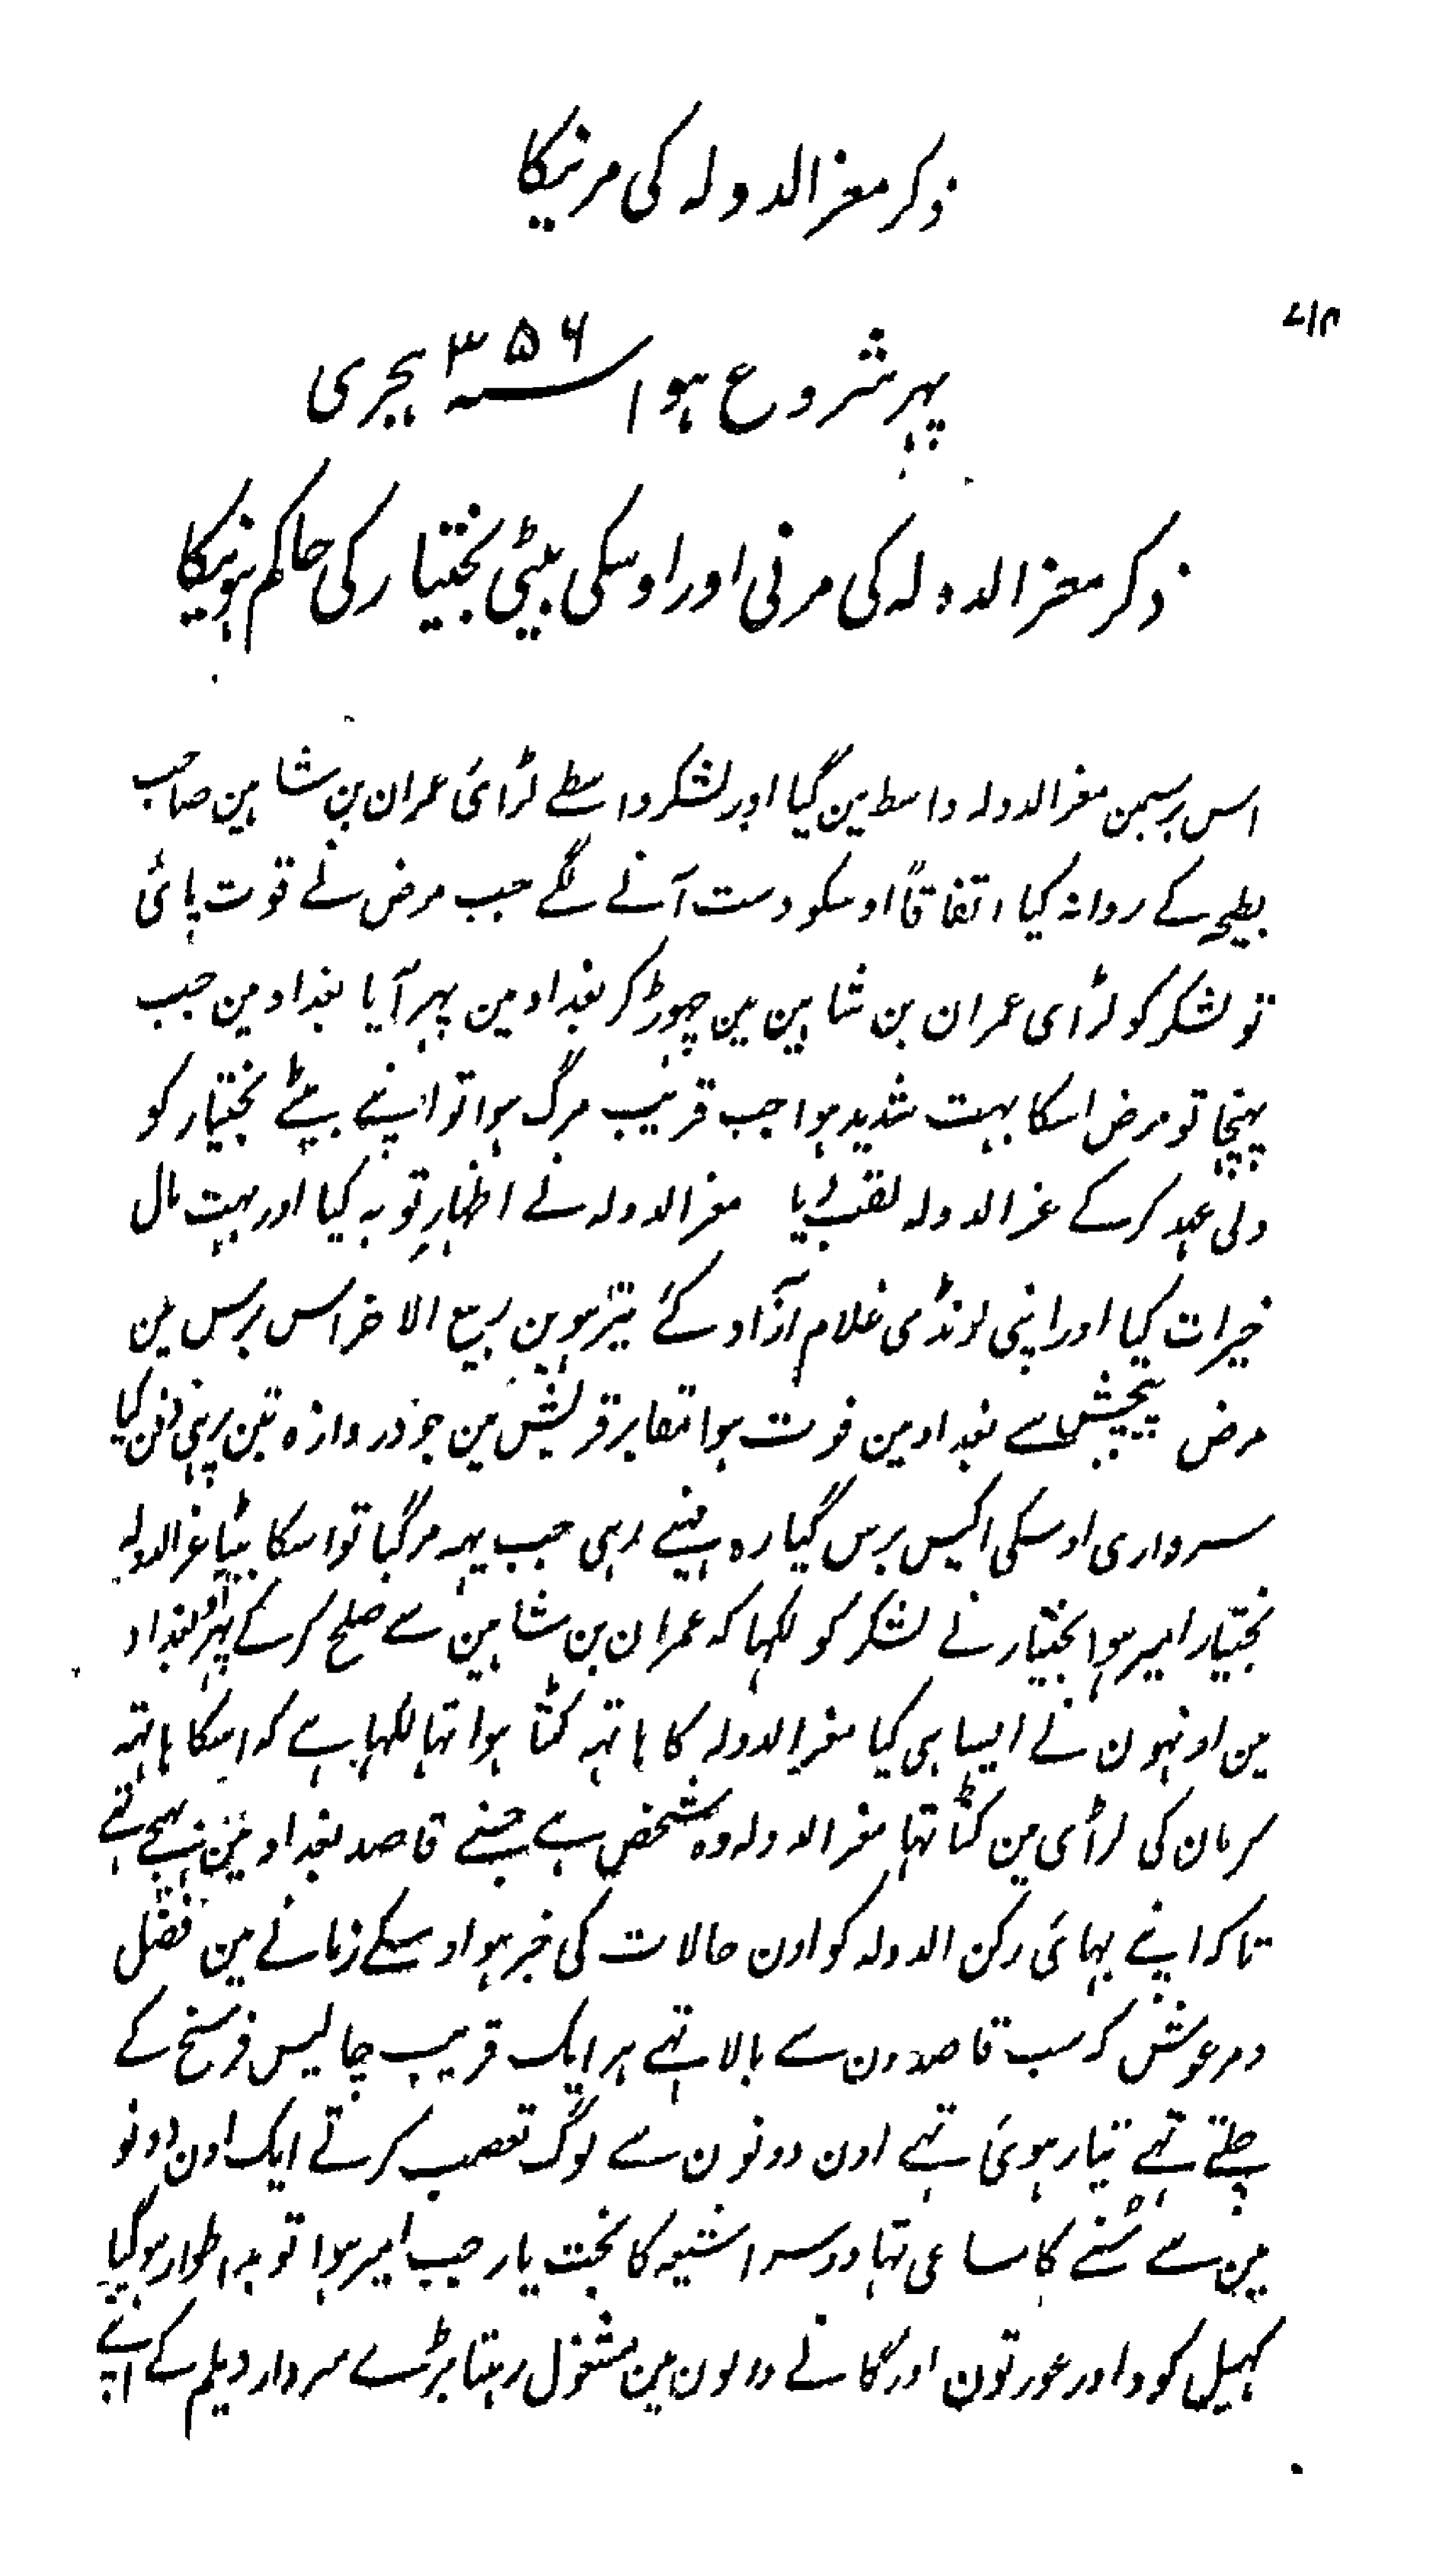 ذکر معزالدولہ کی مرنیکا
پہر شروع ہوا سنہ ۳۵۶ ہجری
ذکر معزالدولہ کی مرنی اور اوسکی بیٹی بختیار کی حاکم ہونیکا
اس برسمین معزالدولہ واسط مین گیا اور لشکر واسطے لڑائی عمران بن شاہین صاحب
بطیحہ کے روانہ کیا اتفاقاً اوسکو دست آنے لگے جب مرض نے قوت پائی
تو لشکر کو لڑای عمران بن شاہین مین چہوڑ کر بغداد مین پہر آیا بغداد مین جب
پہنچا تو مرض اسکا بہت شدید ہوا جب قریب مرگ ہوا تو اپنے بیٹے بختیار کو
ولی عہد کرکے عزالدولہ لقب دیا معزالدولہ نے اظہار توبہ کیا اور بہت مال
خیرات کیا اور اپنی لونڈی غلام آزاد کئے تیرہوین ربیع الاخر اس برس مین
مرض پیچش سے بغداد مین فوت ہوا مقابر قریش مین جو دروازہ تبن پر ہی دفن کیا
سرداری اوسکی اکیس برس گیارہ مہینے رہی جب یہہ مرگیا تو اسکا بیٹا عزالدولہ
بختیار امیر ہوا بختیار نے لشکر کو لکہا کہ عمران بن شاہین سے صلح کرکے پہر آؤ بغداد
مین اونہون نے ایسا ہی کیا معزالدولہ کا ہاتہہ کٹا ہوا تہا لکہا ہے کہ اسکا ہاتہہ
کرمان کی لڑائی مین کٹا تہا معزالدولہ وہ شخص ہے جسنے قاصد بغداد مین بہیجے تہے
تاکہ اپنے بہائی رکن الدولہ کو اون حالات کی خبر ہو اوسکے زمانے مین فضل
ومرعوش کہ سب قاصدون سے بالا تہے ہر ایک قریب چالیس فرسخ کے
چلتے تہے تیار ہوئی تہے اون دونون سے لوگ تعصب کرتے ایک اون دونو
مین سے سُنے کا ساعی تہا دوسرا شیعہ کا بخت یار جب امیر ہوا تو بد اطوار ہوگیا
کہیل کود اور عورتون اور گانے والون مین مشغول رہتا بڑے سردار دیلم کے اپنے